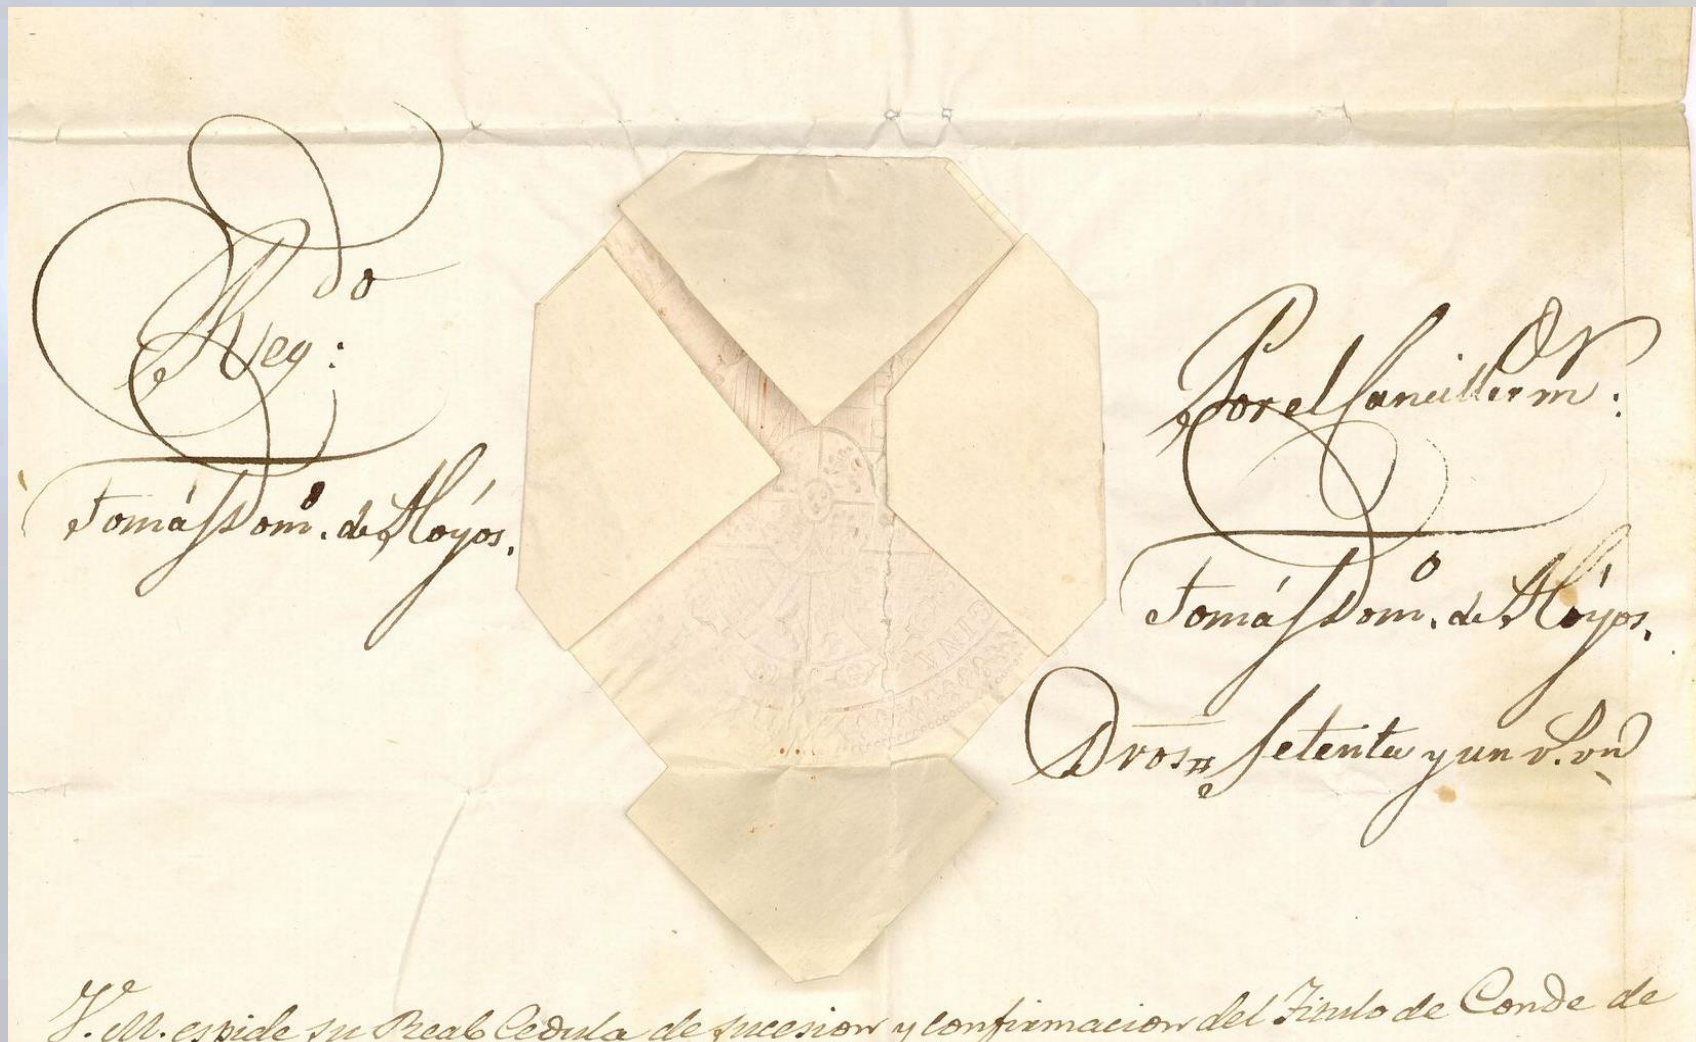 Reg.do:
Tomás Dom.o de Hoyos.
Por el Canciller m.or:
Tomás Dom.o de Hoyos.
Dros. setenta y un r.s vn
V. M. espide su Real Cedula de sucesion y confirmacion del Titulo de Conde de